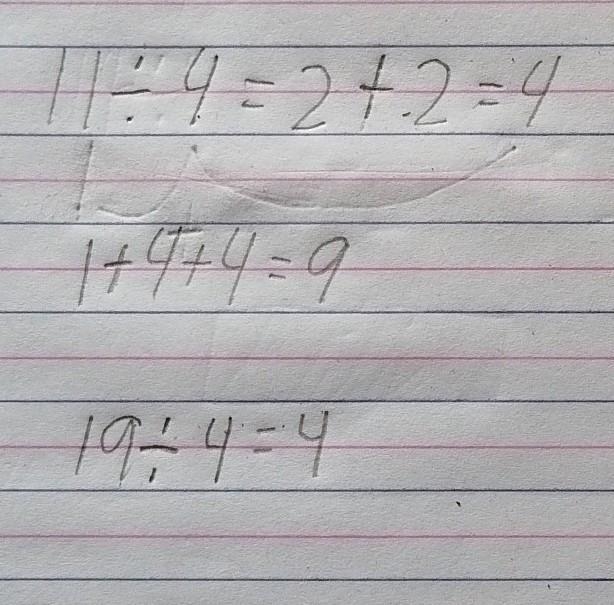 11÷4=2+2=4
1+4+4=9
19÷4=4